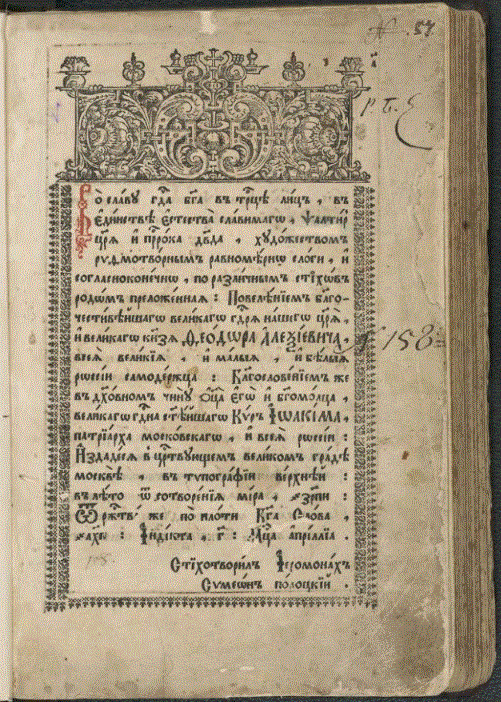 № 57
р. Б. Є
Во славу гдⷭ҇а бг҃а въ трⷪ҇цѣ лицъ, въ
единствѣ естества славимагѡ, Ѱалти́р
цр҃ѧ и пррⷪ҇ка дв҃да, художествомъ
риѳмотворнымъ равномѣрнѡ слоги, и
согласноконечнѡ, по различнымъ стіхѡвъ
родѡмъ преложенная: Повелѣніемъ бл҃го-
честивѣйшагѡ великагѡ гдⷭ҇рѧ нашегѡ цр҃ѧ,
и великагѡ кнзѧ Ѳеѡдѡра Алеѯіевича,
всеѧ великіѧ, и малыѧ, и бѣлыѧ
рѡссіи самодержца: Благословеніемъ же
въ дх҃овномъ чину ѻц҃а егѡ и бг҃омолца,
великагѡ гдⷭ҇на ст҃ѣйшагѡ Кѵръ Іѡакіма,
патріарха московскагѡ, и всеѧ рѡссіи:
Издадеся в црⷭ҇твующемъ великомъ градѣ
москвѣ, въ тѵпографіи верхнѣй:
въ лѣто ѿ сотворенія міра, ҂зрпи:
Ѿ ржⷭ҇тва же по плоти Бг҃а Слова,
҂ахп: Індікта, г: Мцⷭ҇а апрілліа.
Стіхотворилъ Іеромонахъ
Сѵмеѡнъ полоцкій.
158